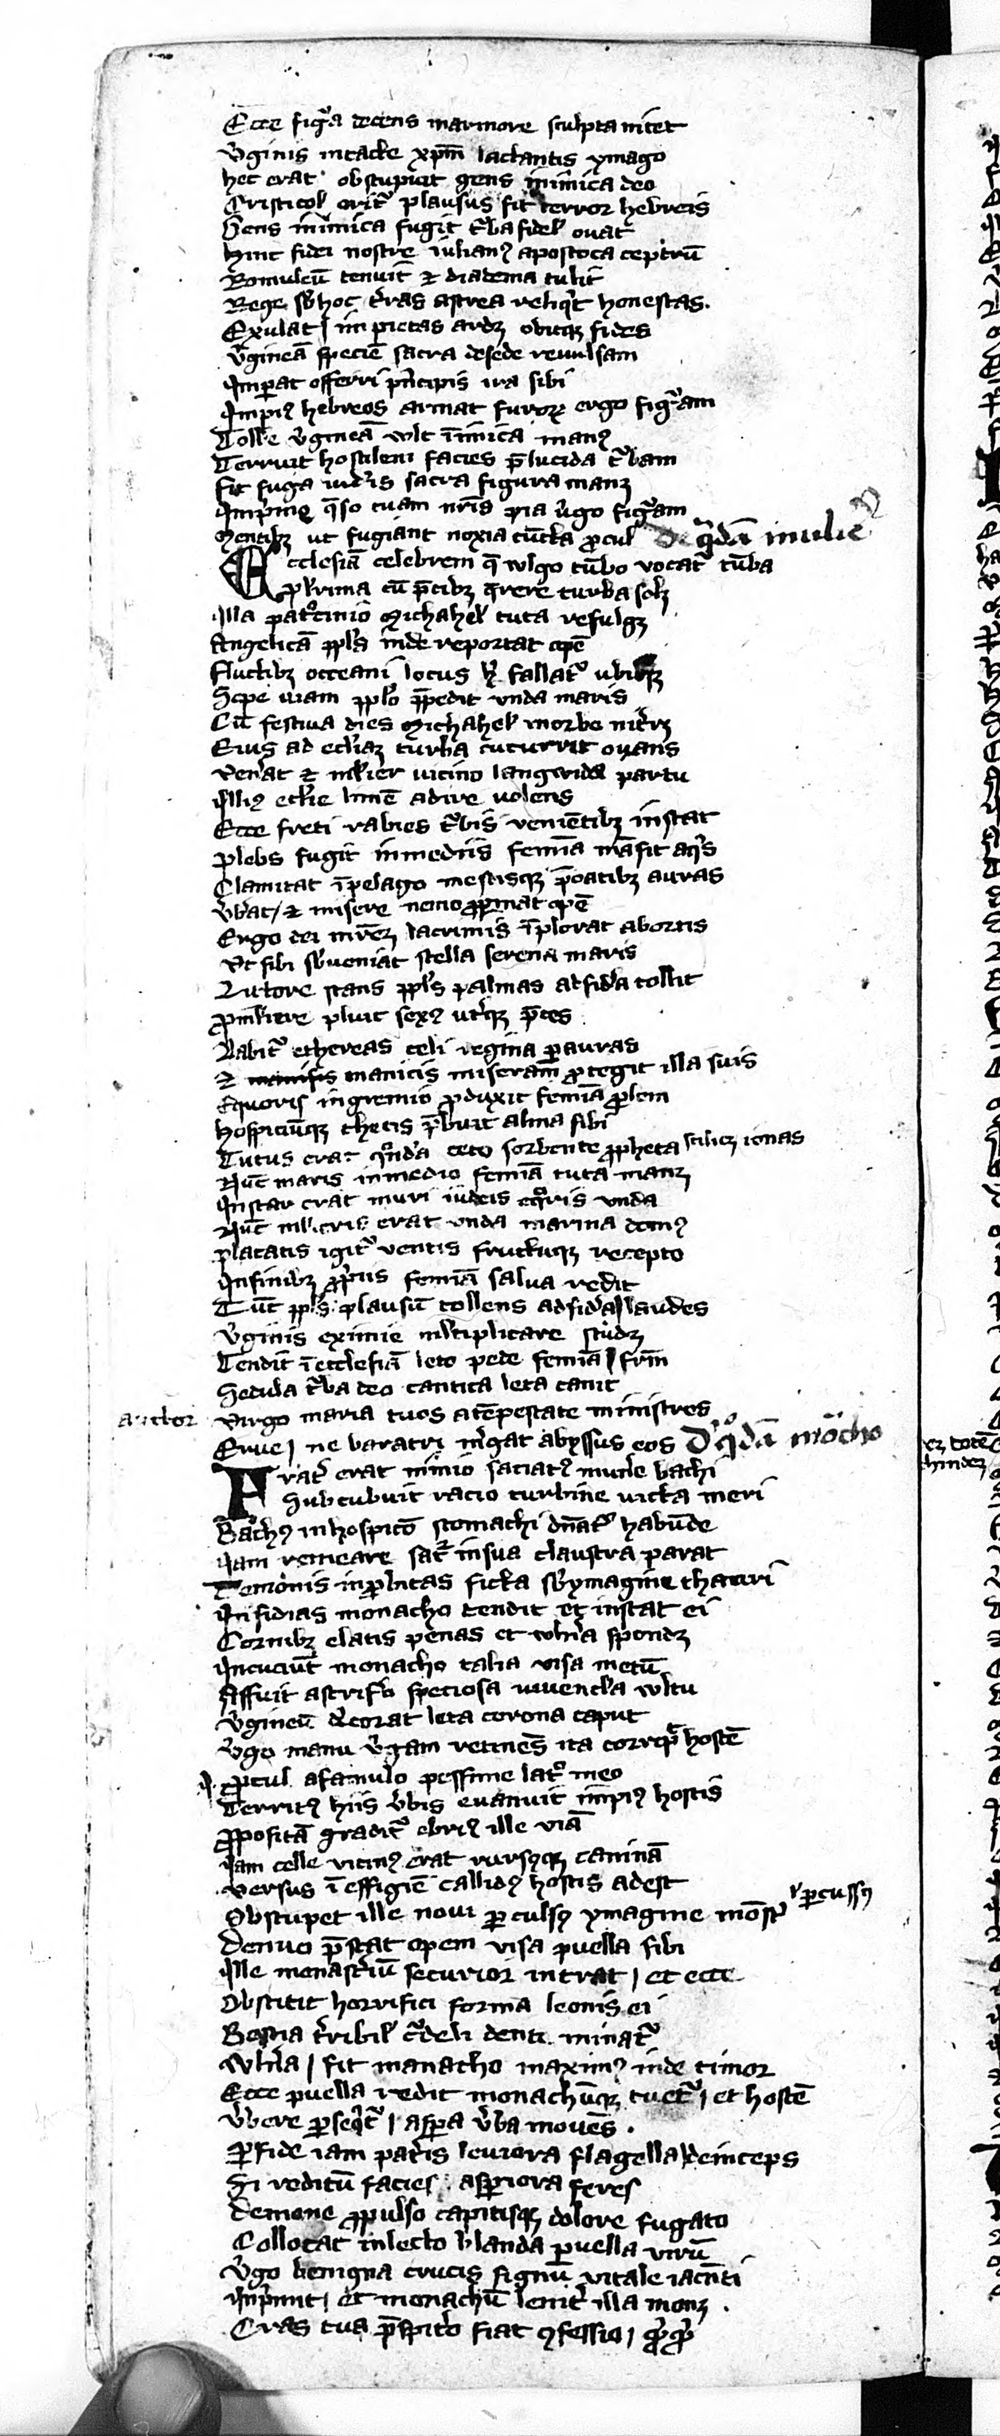 Ecce figͬa decens marmore sculpta nitet
v̓ginis intacte xp̄m lactantis ymago
hec erat obstupuit gens inimica deo
Cristicol oritᷣ plausus fit terror hebreis
Gens inimica fugit tᷣba fidel ouat
hinc fidei nostre iulianꝰ apostota ceptrū
Romuleū tenuit ⁊ diadema tulit
Rege sb̓ hoc t̓ras astrea reliqͥt honestas.
Exulat / impietas ardꝫ obitqꝫ fides
v̓gineā speciē sacra de sede reuulsam
Imꝑat offerri pͥncipis ira sibi
Impiꝰ hebreos armat furorꝫ ergo figᷣam
Tolle v̓gineā wlt īimica manꝰ
Terruit hostilem facies p̄lucida tᷣbam
fit fuga iud̓is sacra figura manꝫ
Impͥme q̄so tuam nr̄is pia v̓go figᷣam
Mentibꝫ ut fugiant noxia cūcta ꝓcul De qᷓdā mulie͛
Ecclesiā celebrem q̄ wlgo tūbo vocatᷣ tūba
plͥrima cū p̄cibꝫ q̄rere turba solꝫ
Illa patͦcinio Michahel tuta refulgꝫ
Angelicā ppl̓s inde reportat opē
fluctibꝫ occeani locus hͨ fallatᷣ ubiqꝫ
Sepe uiam ppl̓o p̄pedit vnda maris
Cū festiua dies Michahel in orbe nit̓ꝫ
Eius ad eccl̓iaꝫ turba cucurrit ouans
ven̓at ⁊ ml̓ier uicino langwida partu
Illiꝰ eccl̓ie limē adire uolens
Ecce freti rabies tᷣbis veniētibꝫ instat
plebs fugit in mediis femīa māsit aqͥs
Clamitat ī pelago mestisqꝫ p̄catibꝫ auras
v̓b̓at / ⁊ misere nemo ꝓpinat opē
Ergo dei mr̄eꝫ lacrimis īplorat abortis
vt sibi sb̓ueniat stella serena maris
Litore stans ppl̓s palmas ad sid̓a tollit
ꝓ ml̓iere pluit sexꝰ ut̓qꝫ p̄ces
Labitᷣ ethereas celi regina ꝑ auras
⁊ manicis miseram ꝓtegit illa suis
Equoris in gremio ꝓduxit femīa ꝓlem
hospiciūqꝫ thetis p̄buit alma sibi
Tutus erat qͦnd̓a ceto sorbente ꝓpheta scilicꝫ ionas
Nūc maris in medio femīa tuta manꝫ
Instar erat muri iudeis eqͦris vnda
Nūc ml̓ieris erat vnda marina domꝰ
placatis igitᷣ ventis fructuqꝫ recepto
In finibꝫ ꝓpriis femīa salua redit
Tūc ppl̓s plausū tollens ad sid̓a / laudes
v̓ginis eximie ml̓tiplicare studꝫ
Tendit ī ecclesiā leto pede femīa /
Sedula tᷣba deo cantica leta canit
auctor virgo maria tuos a tēpestate ministros
Erue / ne baratri m̓gat abyssus eos De qͦdā mōcho
Frat̓ erat nimio saciatꝰ mun̓e bachi
Subcubuit racio turbine uicta meri
Bachꝰ in hospicio stomachi dn̄atᷣ habūde
Iam remeare satᷣ in sua claustra parat
Demonis improbitas ficta sb̓ ymagine thauri
Insidias monacho tendit et instat ei
Cornibꝫ elatis penas et wln̓a spondꝫ
Incuciūt monacho talia visa metū
Affuit astrif̓o speciosa iuuencula wltu
v̓gineū d̓corat leta corona caput
v̓go manu v̓gam retinens ita corripͥt hostē
ꝓcul a famulo pessime latᷣ meo
Territꝰ hiis v̓bis euanuit impiꝰ hostis
ꝓpositā graditᷣ ebriꝰ ille viā
Iam celle vicinꝰ erat rursꝰqꝫ caninā
versus ī effigiē callidꝰ hostis adest
Obstupet ille noui ꝑculsꝰ ymagine mōstri vͥ ꝑcussꝰ
Denuo p̄stat opem visa puella sibi
Ille monast̓iū securior intrat / et ecce
Obstitit horrifici forma leonis ei
Bestia t̓ribil crͧdeli denti minatᷣ
wln̓a / fit monacho maximꝰ inde timor
Ecce puella redit monachūqꝫ tuetᷣ / et hostē
v̓bere ꝑseqͥtᷣ / asꝑa v̓ba mouēs .
ꝑfide iam pat̓is leuiora flagella / deinceps
Si reditū facies asꝑiora feres
Demone ꝓpulso capitisqꝫ dolore fugato
Collocat in lecto blanda puella virū
v̓go benigna crucis signū vitale iacēti
Impͥmit / et monachū lenit̓ illa monꝫ .
Cras tua p̄sbit̓o fiat ꝯfessio /